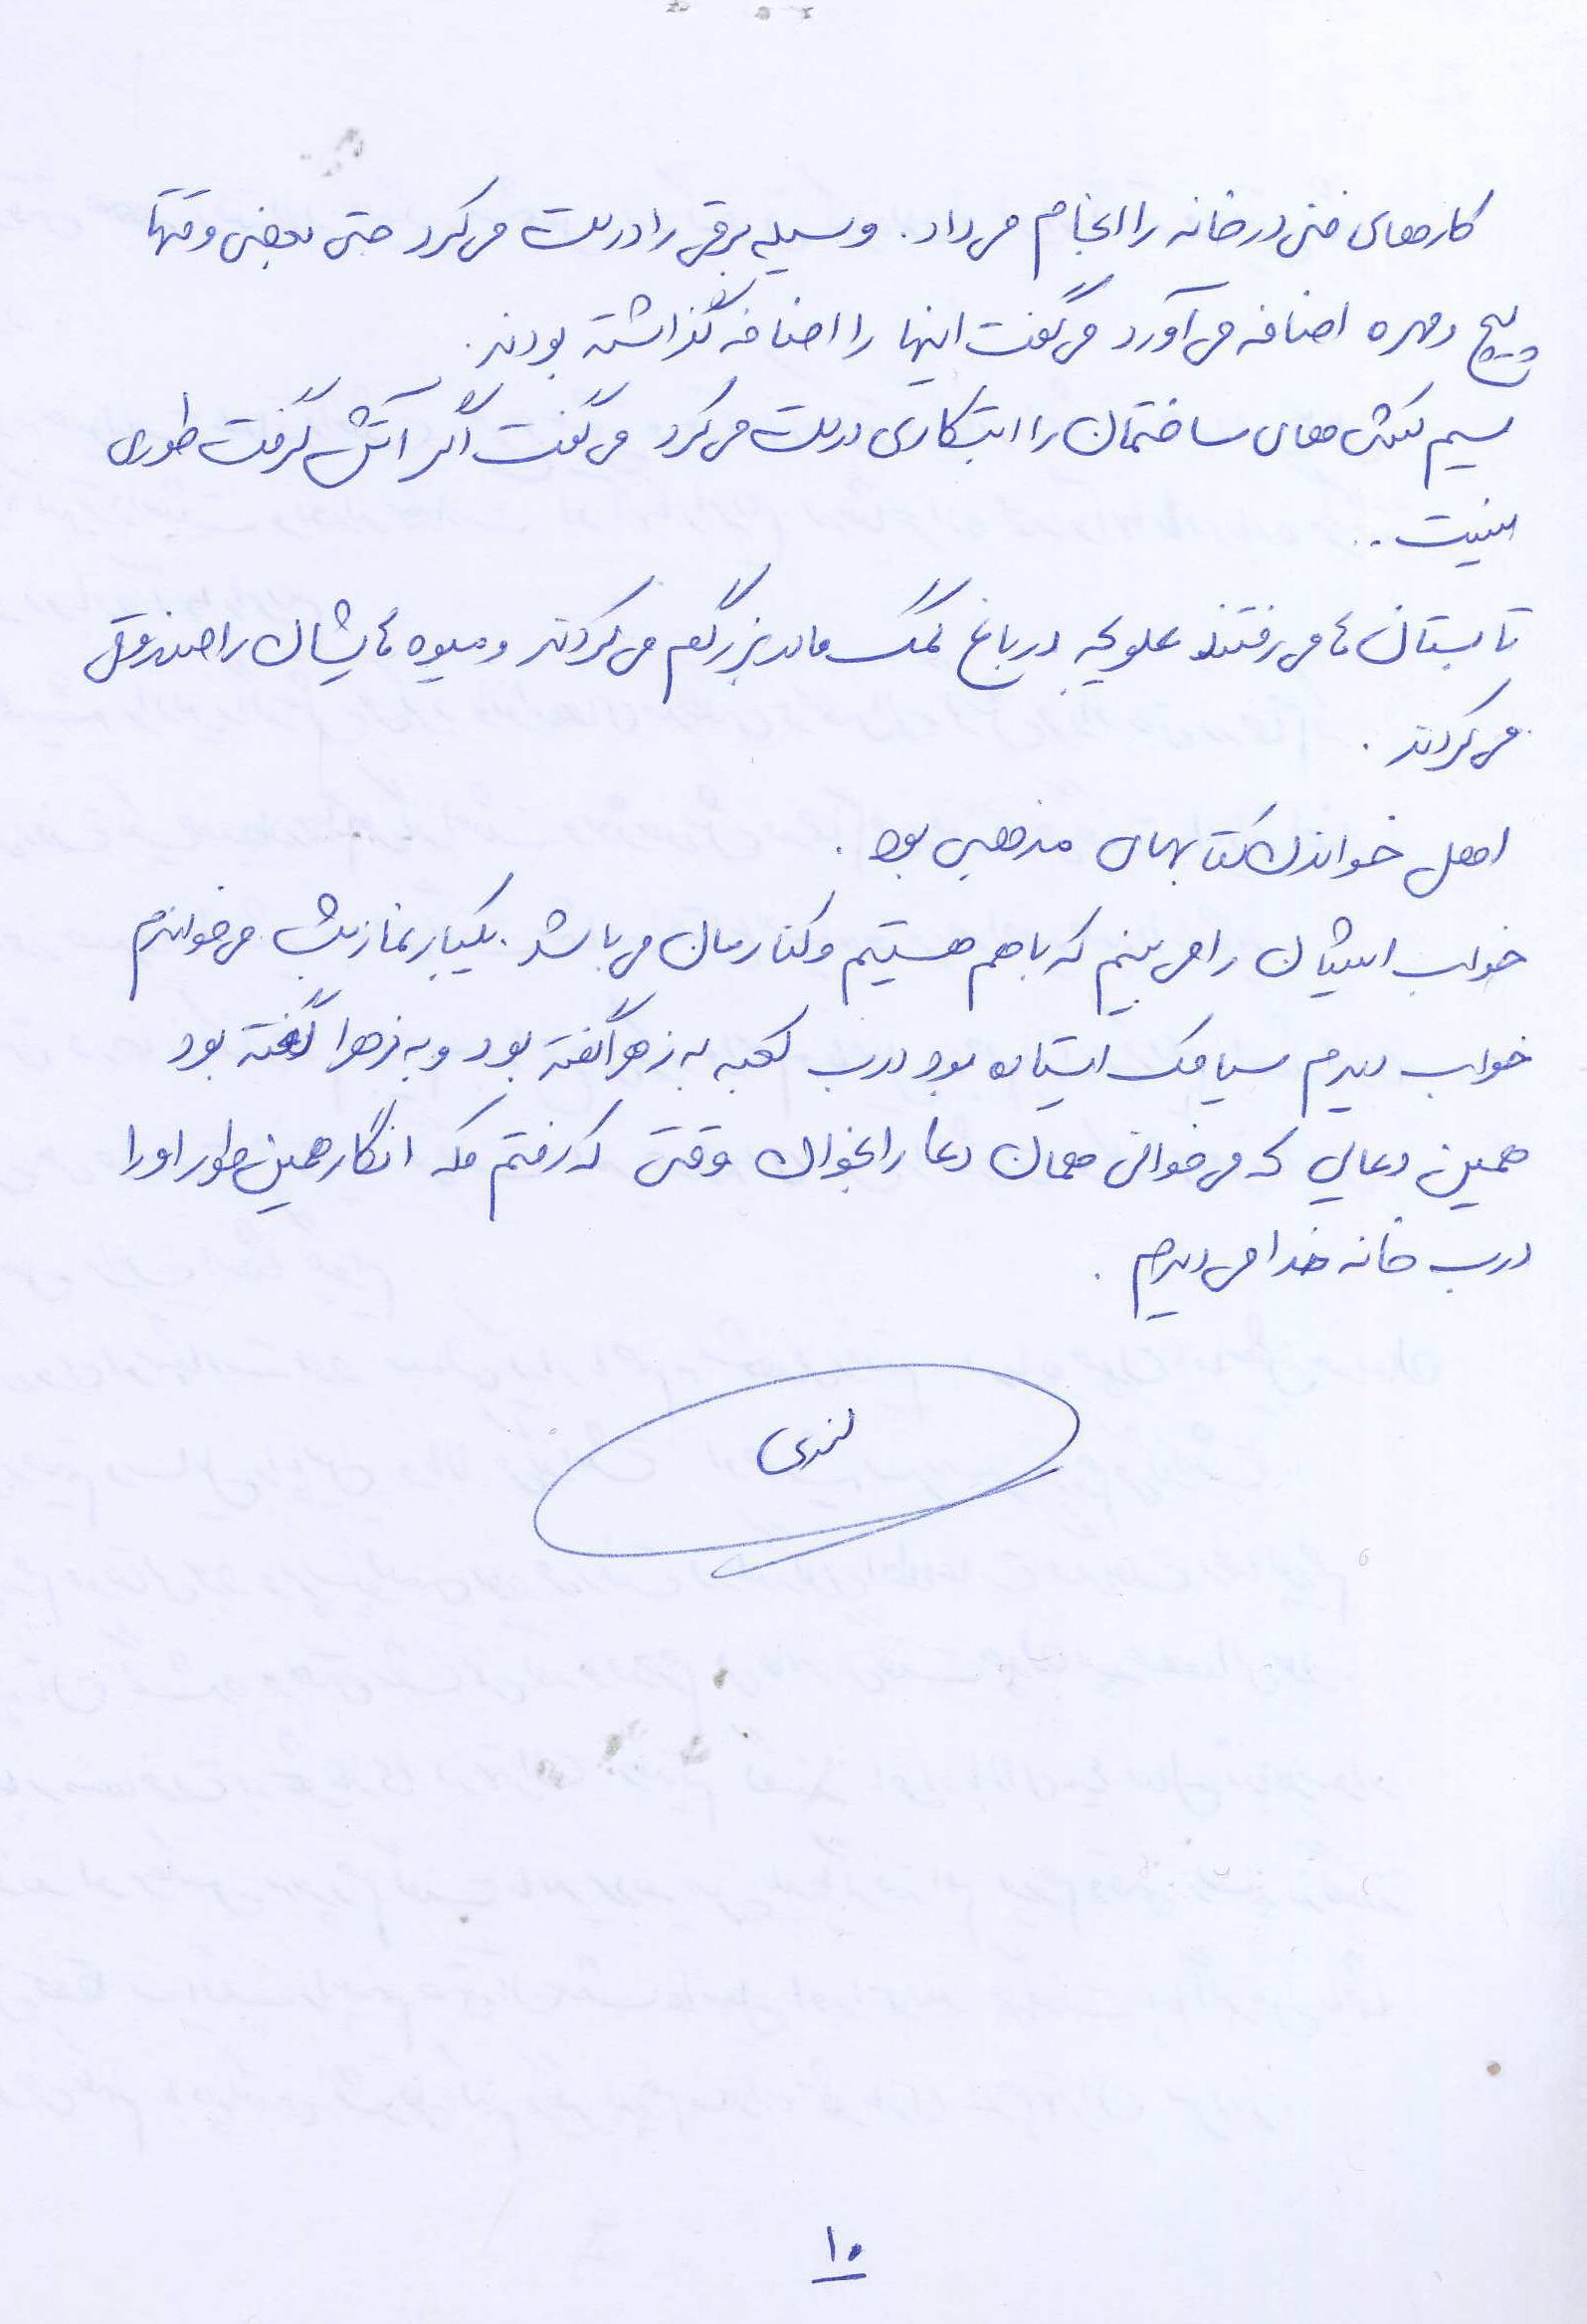 کارهای فنی در خانه را انجام می داد. وسیله برقی را درست می کرد حتی بعضی وقتها
پیچ و مهره اضافه می آورد می گفت اینها را اضافه گذاشته بودند.
سیم کشی های ساختمان را ابتکاری درست می کرد می گفت اگر آتش گرفت طوری
نیست..
تابستان ها می رفتند علویجه در باغ کمک مادربزرگم می کردند و میوه هایشان را صندوق
می کردند.
اهل خواندن کتابهای مذهبی بود.
خواب ایشان را می بینم که با هم هستیم و کنارمان می باشد. یکبار نماز شب می خواندم
خواب دیدم سیامک ایستاده بود درب کعبه به زهرا گفته بود و به زهرا گفته بود
همین دعایی که می خوانی همان دعا را بخوان وقتی که رفتم مکه انگار همین طور او را
درب خانه خدا می دیدم.
۱۰